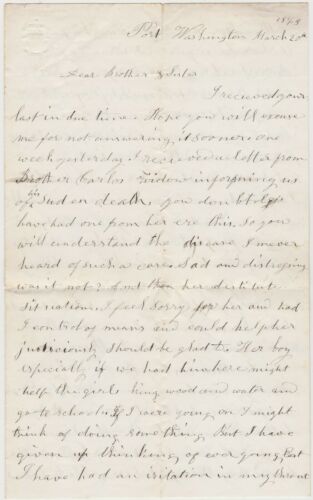 1848
Port Washington March 20th
Dear Brother & Sister
I received your
last in due time. Hope you will excuse
me for not answering it sooner. one
week yesterday I received a letter from
Brother Carlos Widow informing us
of his Sudden death, you doubtless
have had one from her ere this. So you
will understand the disease I never
heard of such a case. Sad and distressing
was it not? And then her destitute
situation. I feel sorry for her and had
I control of means and could help her
judiciously should be glad to. Her boy
especially if we had him here might
help the girls bring wood and water and
go to school. If I were going on I might
think of doing something. But I have
given up thinking of ever going. But
I have had an iritation in my throat